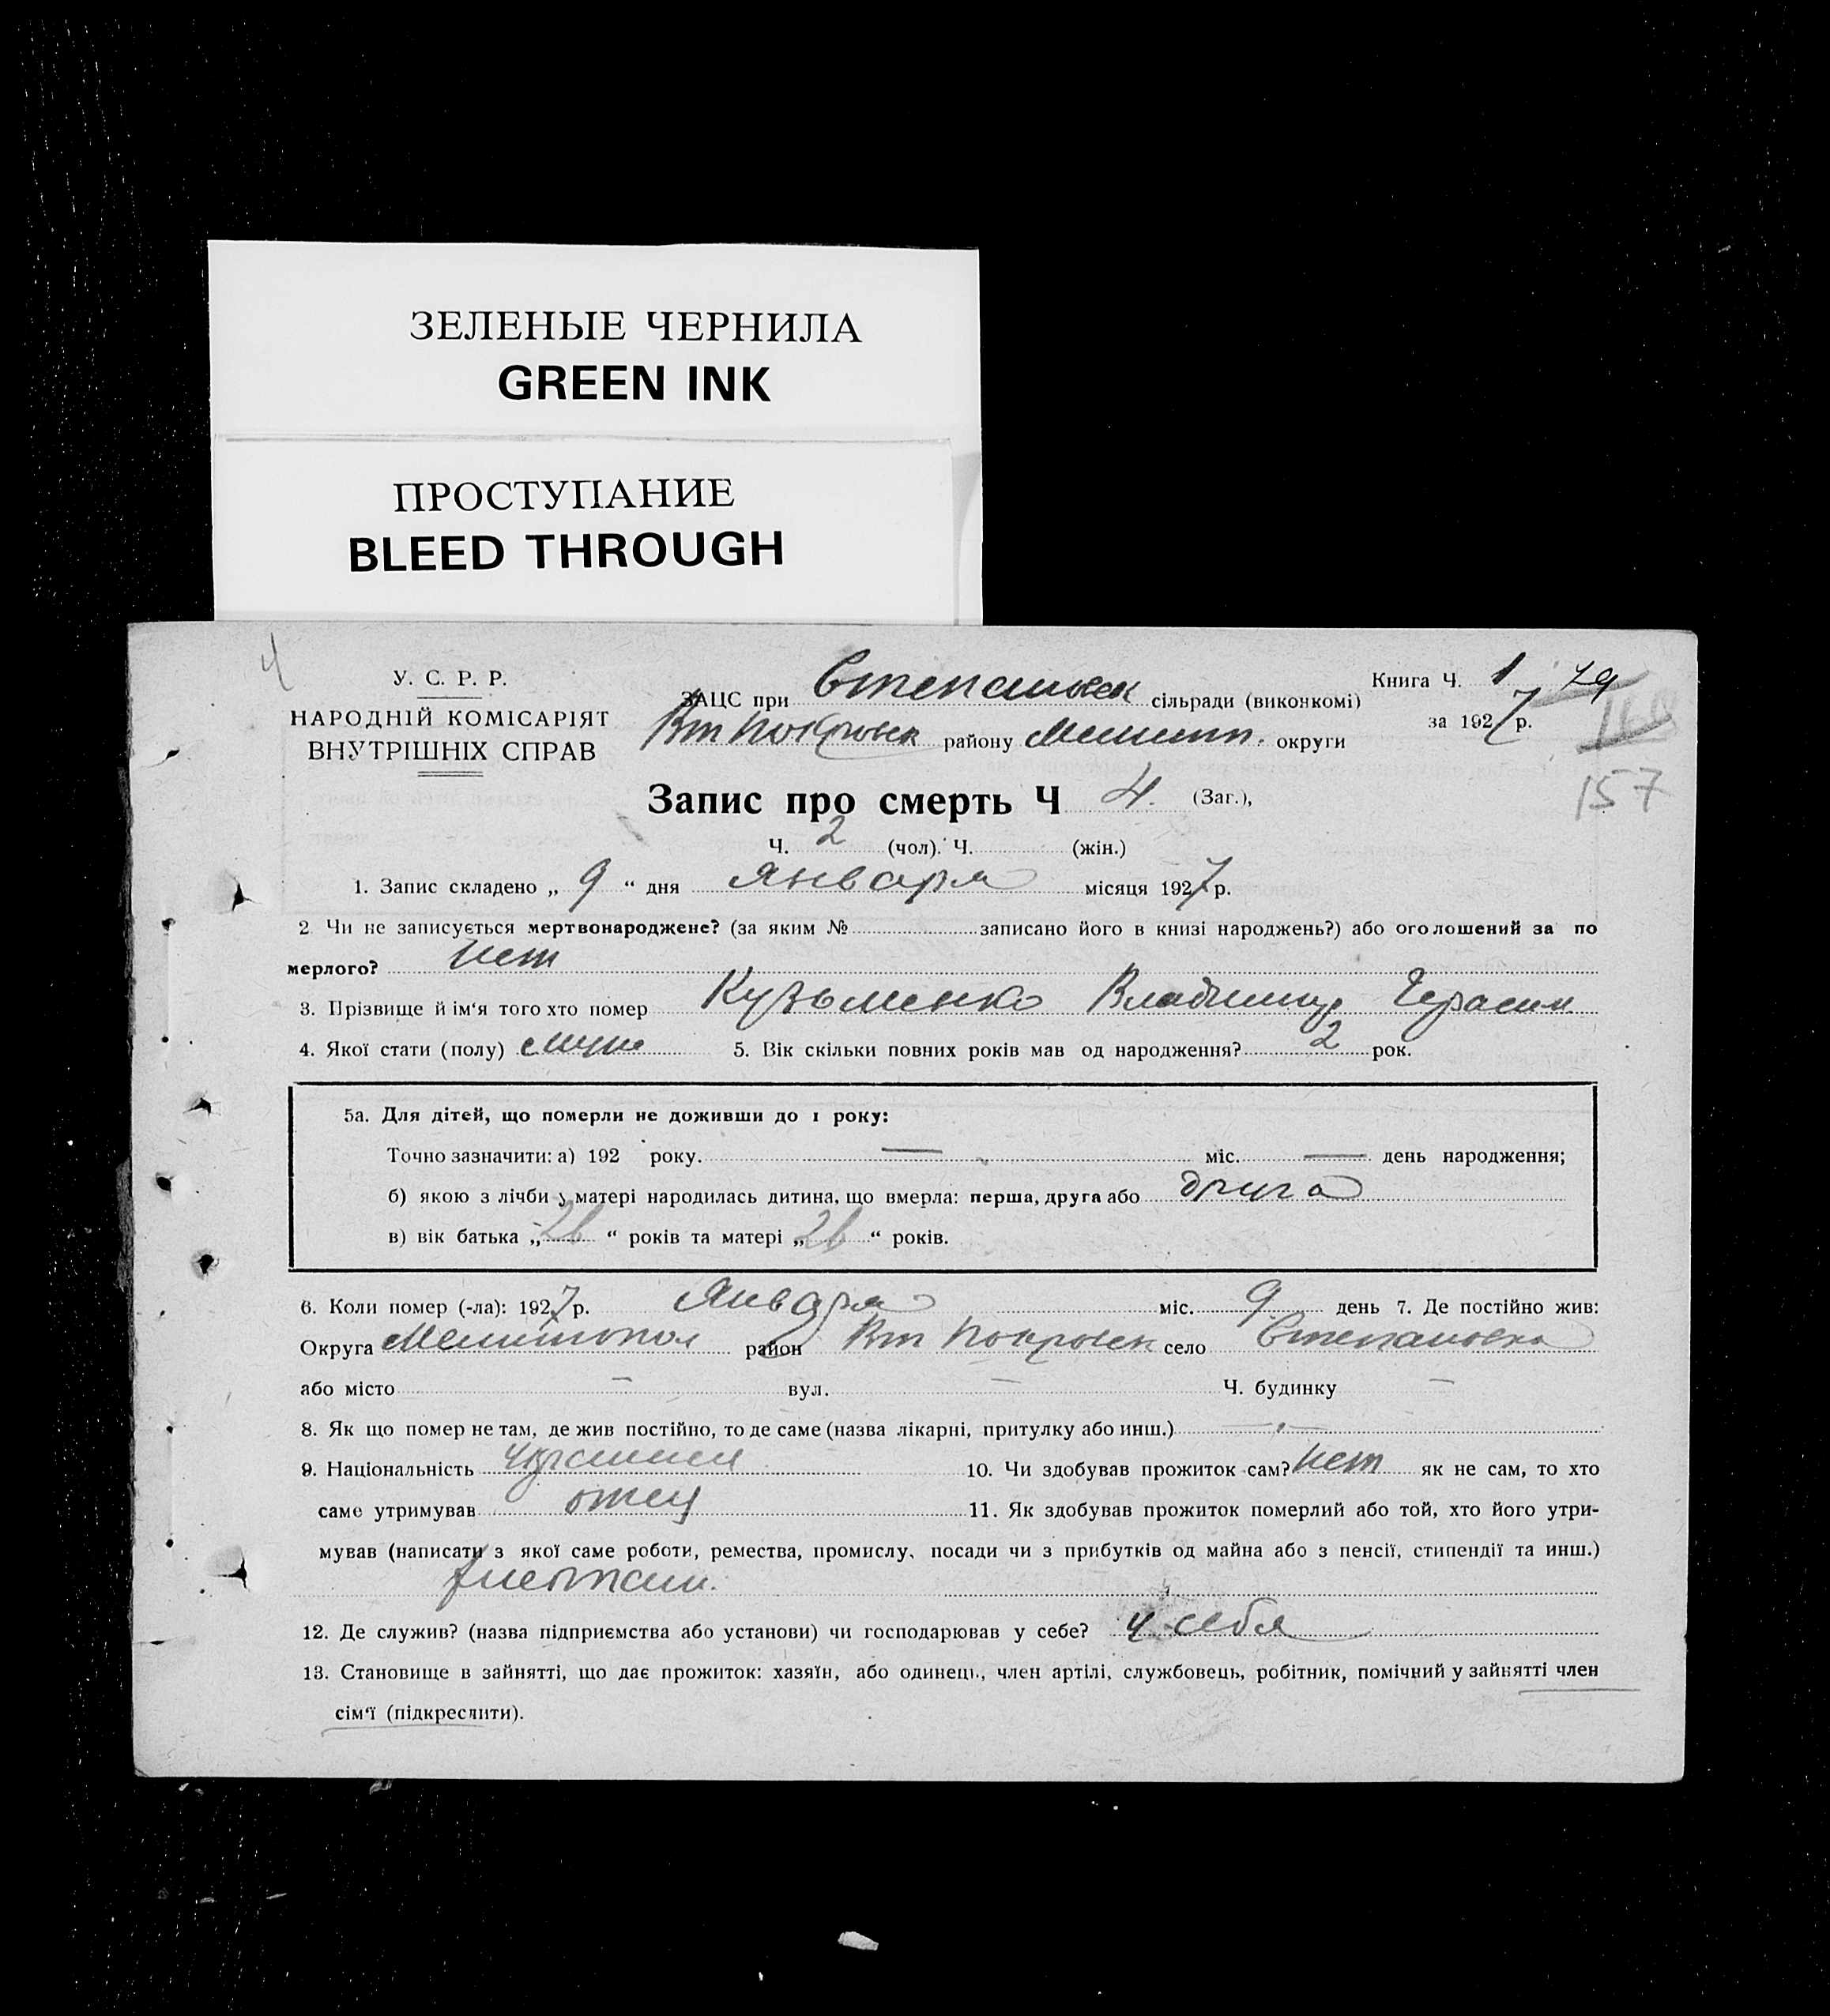 ЗЕЛЕНЫЕ ЧЕРНИЛА
GREEN INK
ПРОСТУПАНИЕ
BLEED THROUGH
4
У. С. Р. Р.
НАРОДНІЙ КОМІСАРІЯТ
ВНУТРІШНІХ СПРАВ
ЗАЦС при Степановск сільради (виконкомі)
Вт Покровск району Мелитоп. округи
Книга Ч. 1 79
за 1927 р.
157
Запис про смерть Ч 4. (Заг.),
Ч. 2 (чол). Ч. (жін.)
1. Запис складено „ 9 “ дня Января місяця 1927 р.
2 Чи не записується мертвонароджене? (за яким № записано його в книзі народжень?) або оголошений за по
мерлого? нет
3. Прізвище й ім‘я того хто помер Кузьменко Владимир Герасим.
4. Якої стати (полу) муж 5. Вік скільки повних років мав од народження? 2 рок.
5а. Для дітей, що померли не доживши до 1 року:
Точно зазначити: а) 192 року. — міс. — день народження;
б) якою з лічби у матері народилась дитина, що вмерла: перша, друга або друга
в) вік батька „ 26 “ років та матері „ 26 “ років.
6. Коли помер (-ла): 1927 р. Января міс. 9 день 7. Де постійно жив:
Округа Мелитопол район Вт Покровск село Степановка
або місто — вул. — Ч. будинку —
8. Як що помер не там, де жив постійно, то де саме (назва лікарні, притулку або инш.) —
9. Національність украинец 10. Чи здобував прожиток сам? нет як не сам, то хто
саме утримував отец 11. Як здобував прожиток померлий або той, хто його утри-
мував (написати з якої саме роботи, ремества, промислу, посади чи з прибутків од майна або з пенсії, стипендії та инш.)
12. Де служив? (назва підприємства або установи) чи господарював у себе? у себя
13. Становище в зайнятті, що дає прожиток: хазяїн, або одинець, член артілі, службовець, робітник, помічний у зайнятті член
сім‘ї (підкреслити).